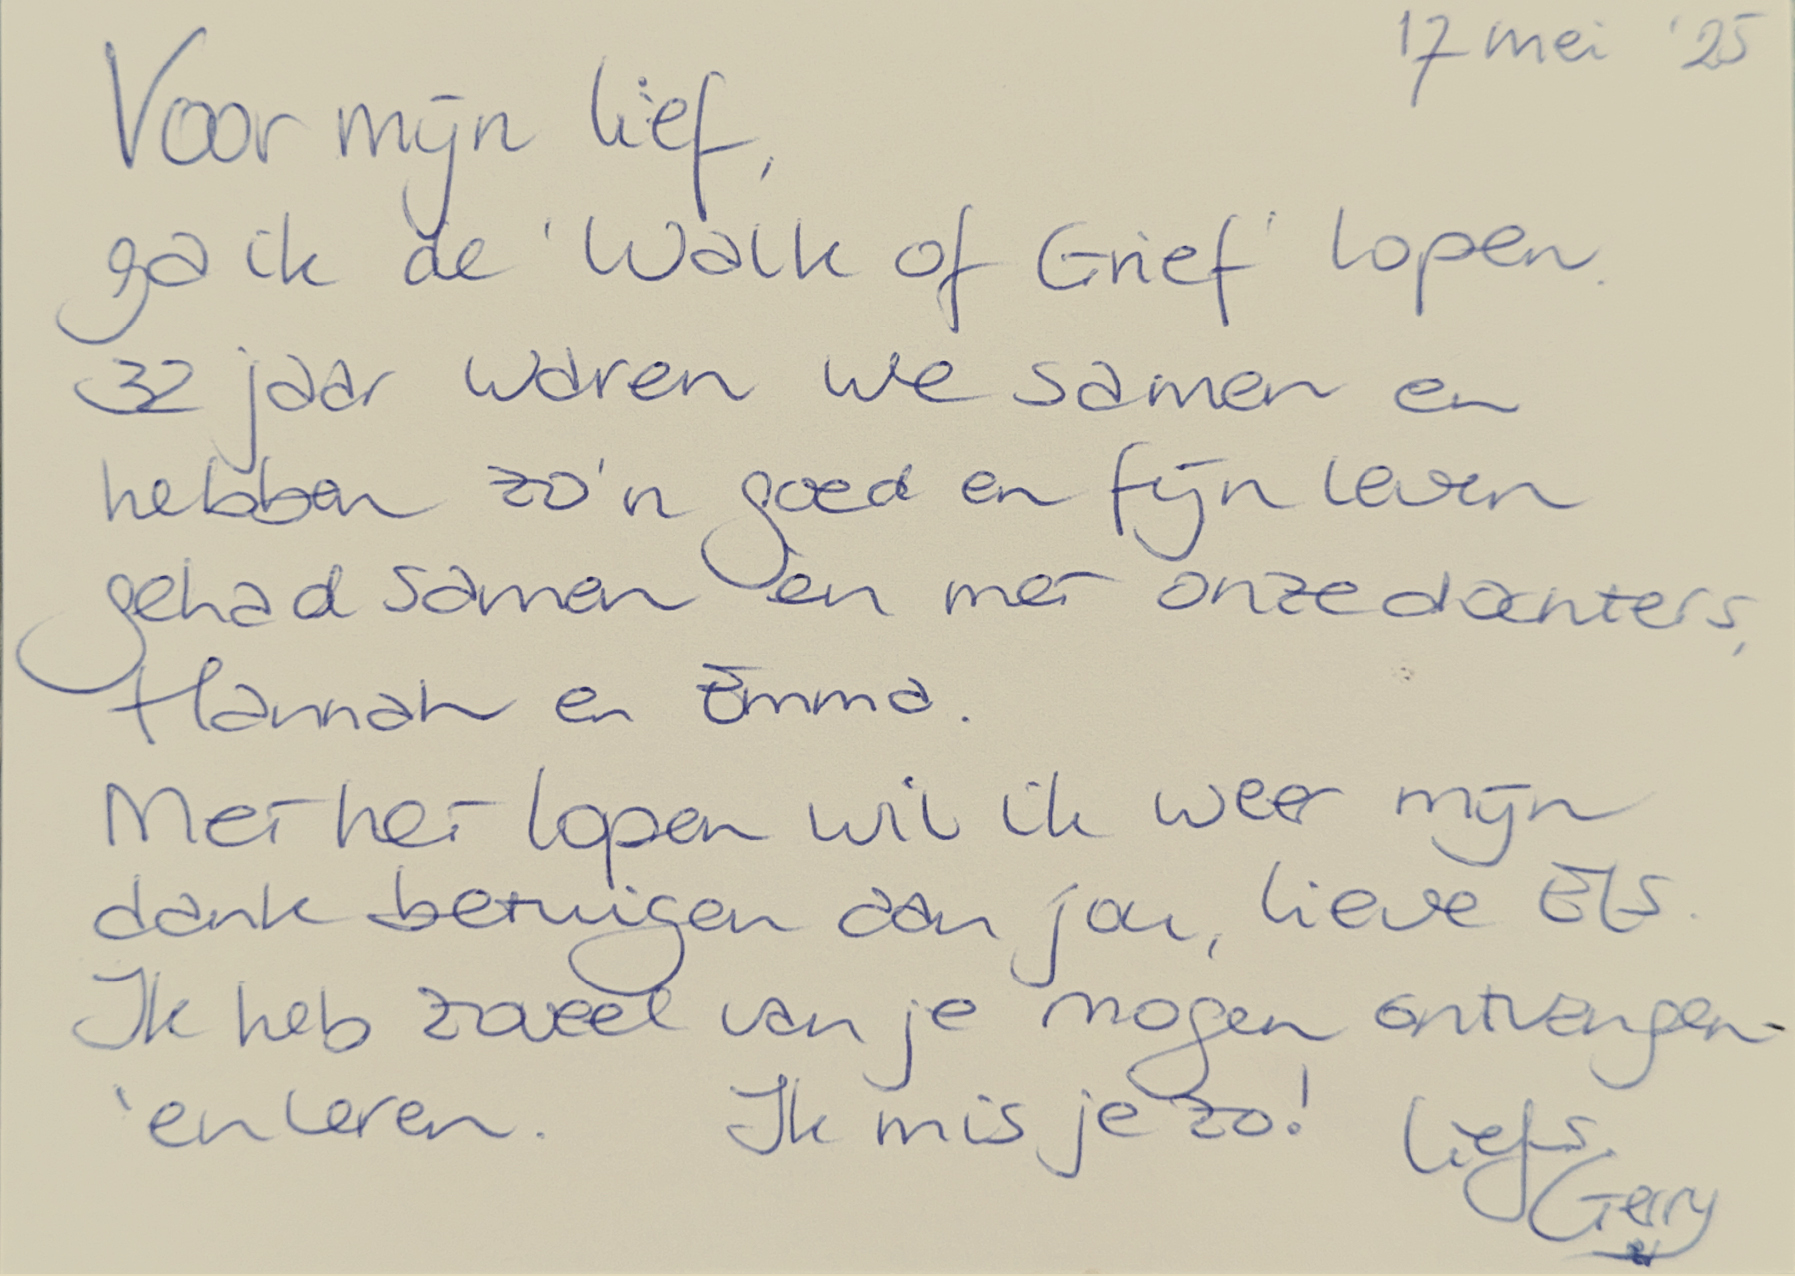 17 mei '25
Voor mijn lief,
ga ik de 'Walk of Grief' lopen.
32 jaar waren we samen en
hebben zo'n goed en fijn leven
gehad samen en met onze dochters,
Hannah en Emma.
Met het lopen wil ik weer mijn
dank betuigen aan jou, lieve Els.
Ik heb zoveel van je mogen ontvangen
en leren. Ik mis je zo! liefs,
Gerry